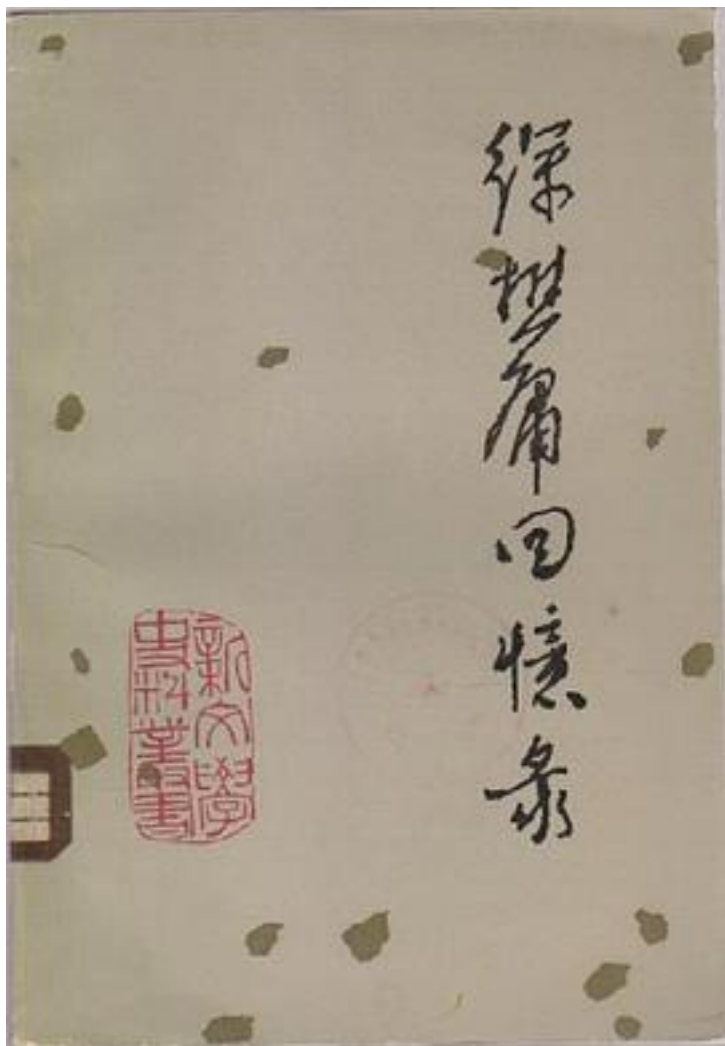 徐懋庸回憶录
新文學
史料叢書